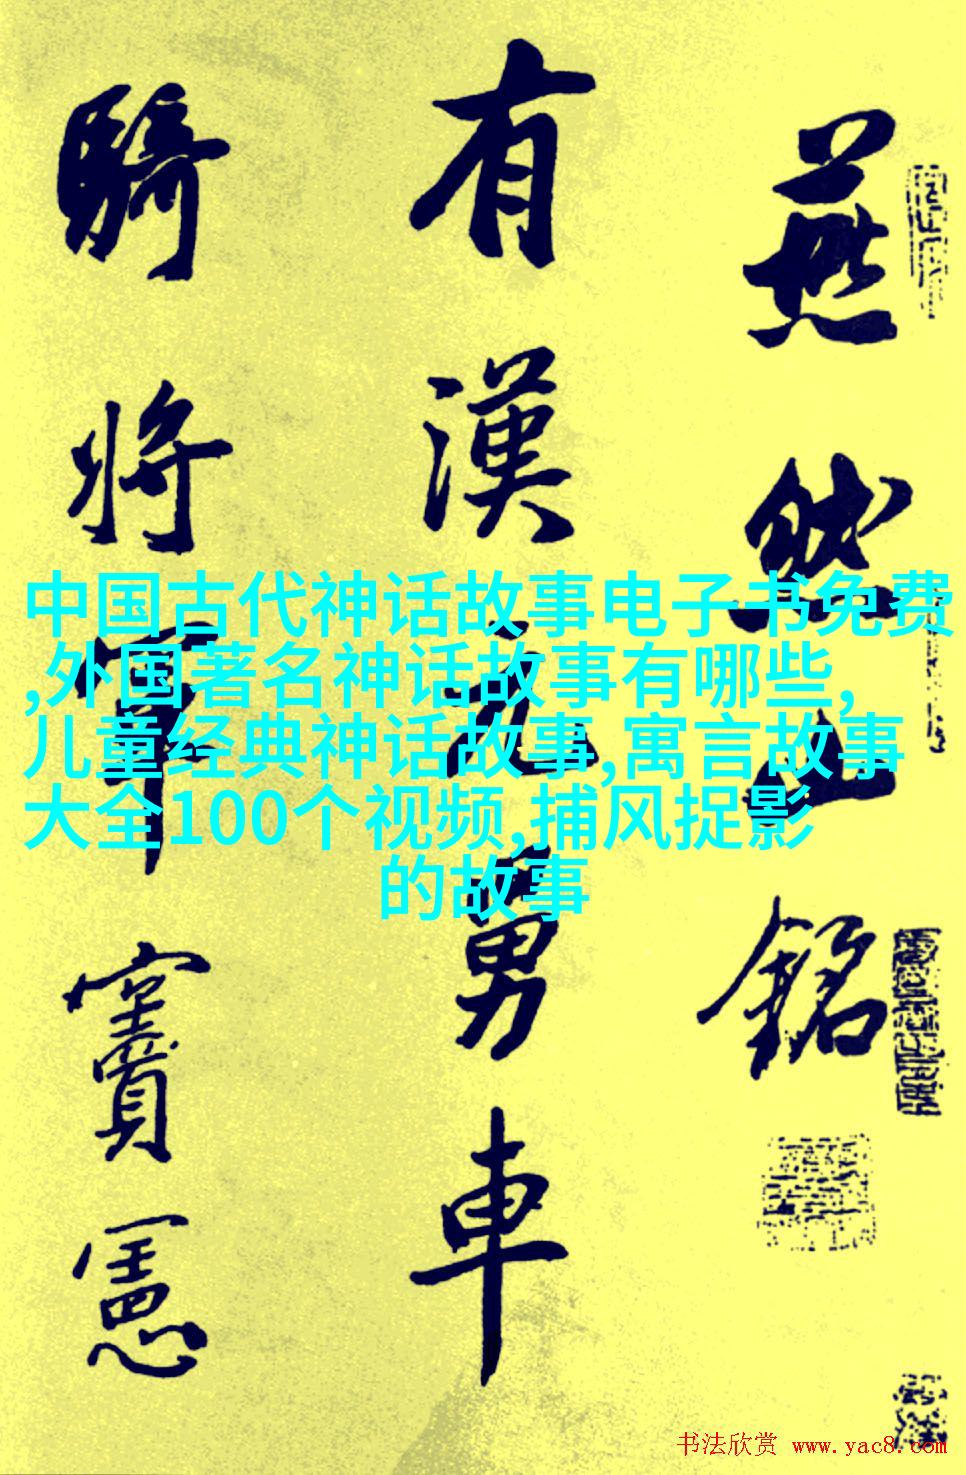 燕然山銘
有漢元舅車
騎將軍竇憲
中国古代神话故事电子书免费
,外国著名神话故事有哪些,
儿童经典神话故事,寓言故事
大全100个视频,捕风捉影
的故事
书法欣赏 www.yac8.com